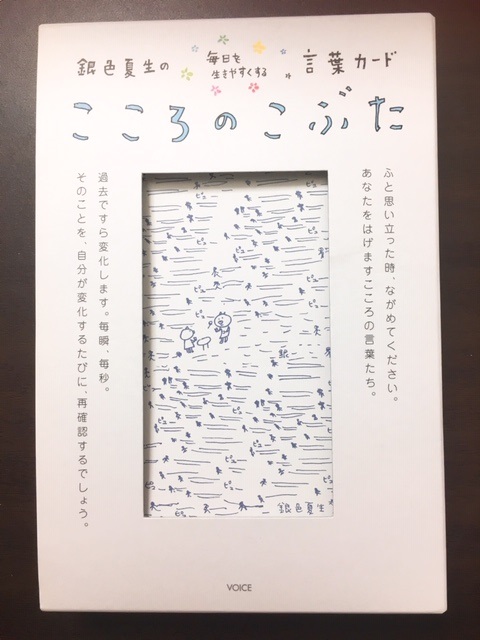 銀色夏生の
毎日を
生きやすくする
言葉カード
こころのこぶた
ふと思い立った時、ながめてください。
あなたをはげますこころの言葉たち。
過去ですら変化します。毎瞬、毎秒。
そのことを、自分が変化するたびに、再確認するでしょう。
ピュー
ピュー
ピュー
ピュー
ピュー
ピュー
ピュー
銀色夏生
VOICE